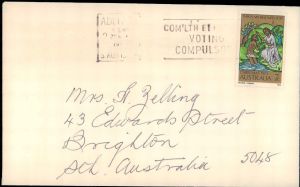 COM'LTH
VOTING
COMPULSORY
AUSTRALIA
Mrs. A. Zelling
43 Edwards Street
Brighton
Sth. Australia 5048